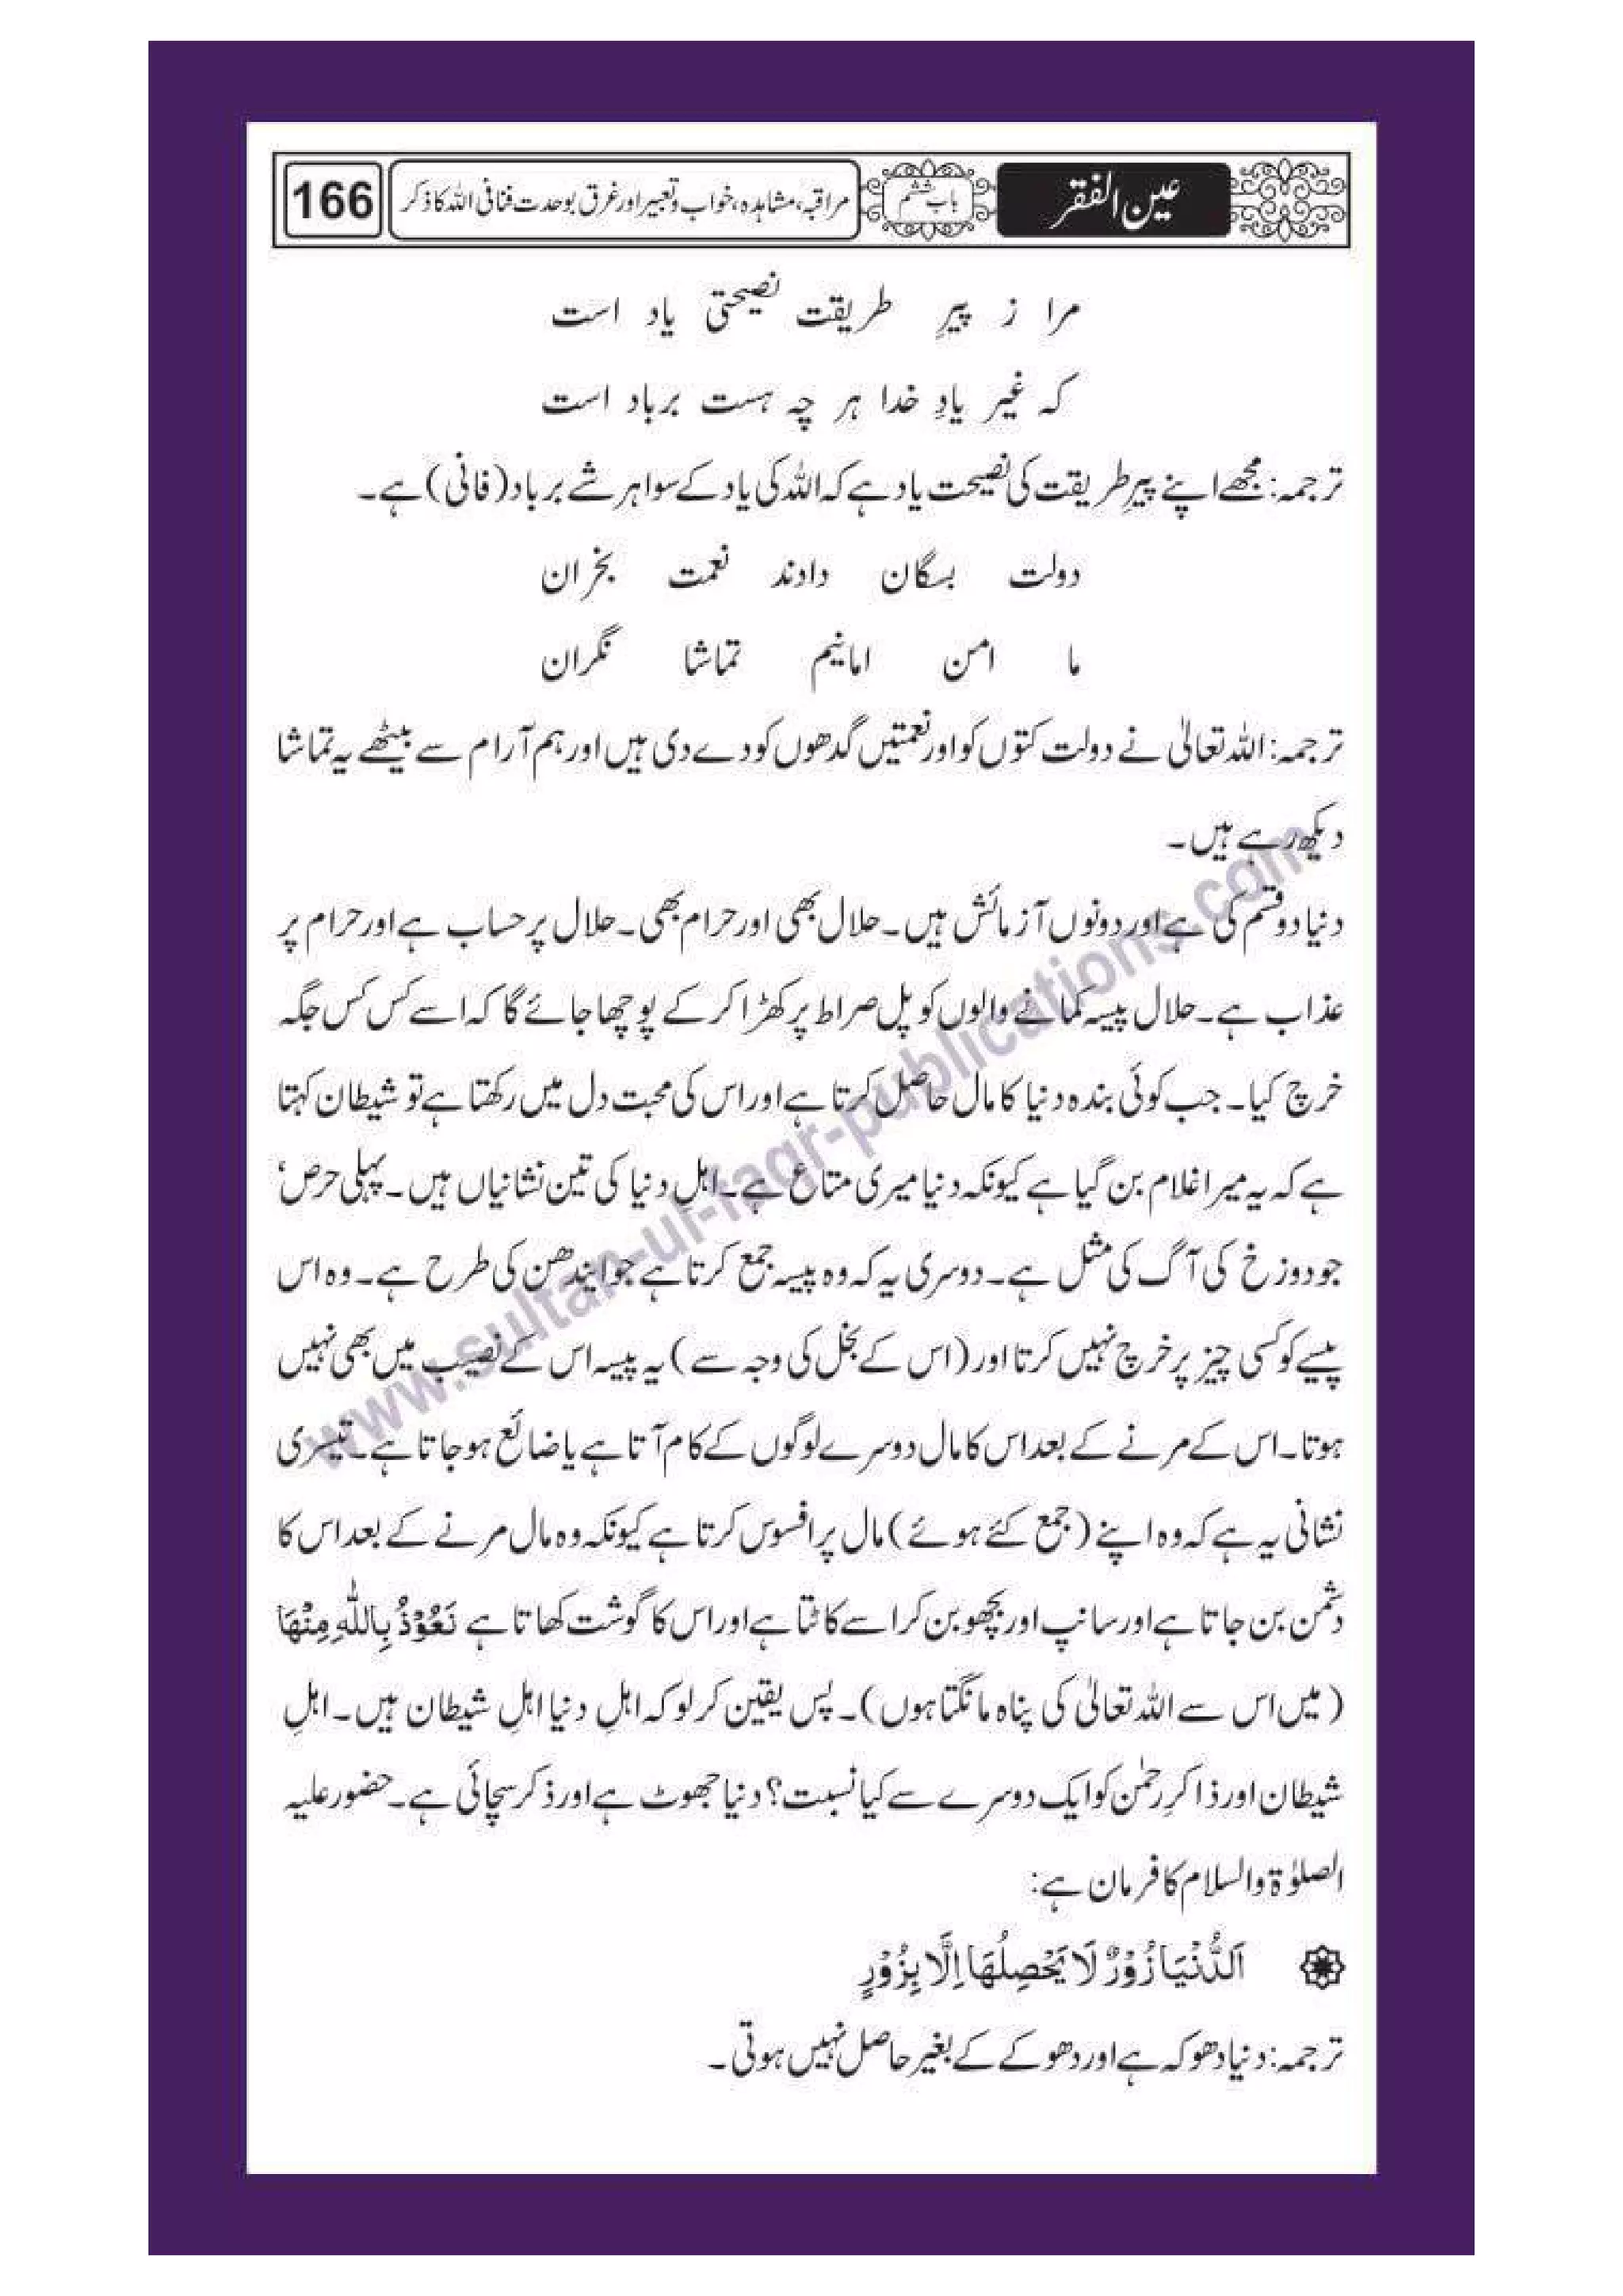 عین الفقر باب ششم مراقبہ، مشاہدہ، خواب و تعبیر اور غرق بوحدت فنا فی اللہ کا ذکر 166
مرا ز پیرِ طریقت نصیحتی یاد است
کہ غیر یادِ خدا ہر چہ ہست برباد است
ترجمہ: مجھے اپنے پیرِ طریقت کی نصیحت یاد ہے کہ اللہ کی یاد کے سوا ہر شے برباد (فانی) ہے۔
دولت بسگان دادند نعمت بخران
ما امن امانیم تماشا نگران
ترجمہ: اللہ تعالیٰ نے دولت کتوں کو اور نعمتیں گدھوں کو دے دی ہیں اور ہم آرام سے بیٹھے یہ تماشا
دیکھ رہے ہیں۔
دنیا دو قسم کی ہے اور دونوں آزمائش ہیں۔ حلال بھی اور حرام بھی۔ حلال پر حساب ہے اور حرام پر
عذاب ہے۔ حلال پیسہ کمانے والوں کو پل صراط پر کھڑا کر کے پوچھا جائے گا کہ اسے کس کس جگہ
خرچ کیا۔ جب کوئی بندہ دنیا کا مال حاصل کرتا ہے اور اس کی محبت دل میں رکھتا ہے تو شیطان کہتا
ہے کہ یہ میرا غلام بن گیا ہے کیونکہ دنیا میری متاع ہے۔ اہلِ دنیا کی تین نشانیاں ہیں۔ پہلی حرص‘
جو دوزخ کی آگ کی مثل ہے۔ دوسری یہ کہ وہ پیسہ جمع کرتا ہے جو ایندھن کی طرح ہے۔ وہ اس
پیسے کو کسی چیز پر خرچ نہیں کرتا اور (اس کے بخل کی وجہ سے) یہ پیسہ اس کے نصیب میں بھی نہیں
ہوتا۔ اس کے مرنے کے بعد اس کا مال دوسرے لوگوں کے کام آتا ہے یا ضائع ہو جاتا ہے۔ تیسری
نشانی یہ ہے کہ وہ اپنے (جمع کئے ہوئے) مال پر افسوس کرتا ہے کیونکہ وہ مال مرنے کے بعد اس کا
دشمن بن جاتا ہے اور سانپ اور بچھو بن کر اسے کاٹتا ہے اور اس کا گوشت کھاتا ہے نَعُوْذُ بِاللّٰهِ مِنْهَا
(میں اس سے اللہ تعالیٰ کی پناہ مانگتا ہوں)۔ پس یقین کر لو کہ اہلِ دنیا اہلِ شیطان ہیں۔ اہلِ
شیطان اور ذاکرِ رحمٰن کو ایک دوسرے سے کیا نسبت؟ دنیا جھوٹ ہے اور ذکر سچائی ہے۔ حضور علیہ
الصلوٰۃ والسلام کا فرمان ہے:
اَلدُّنْيَا زُوْرٌ لَا يَحْصِلُهَا اِلَّا بِزُوْرٍ
ترجمہ: دنیا دھوکہ ہے اور دھوکے کے بغیر حاصل نہیں ہوتی۔
www.sultan-ul-faqr-publications.com